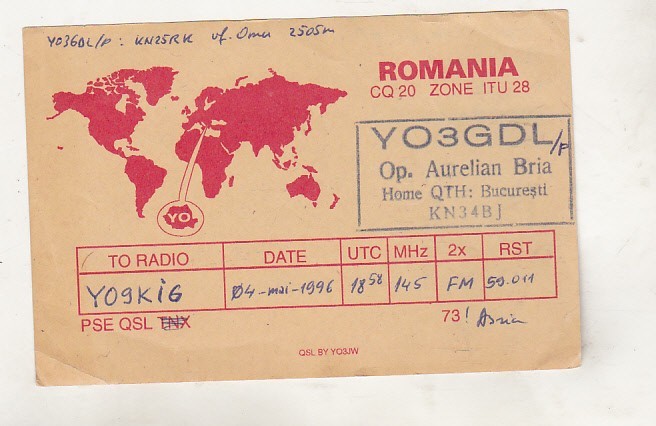 YO3GDL/P: KN25RK vf. Omu 2505m
ROMANIA
CQ 20 ZONE ITU 28
YO3GDL/P
Op. Aurelian Bria
Home QTH: Bucureşti
KN34BJ
YO
TO RADIO DATE UTC MHz 2x RST
YO9KIG 04-mai-1996 18 58 145 FM 59.011
PSE QSL TNX 73!
QSL BY YO3JW